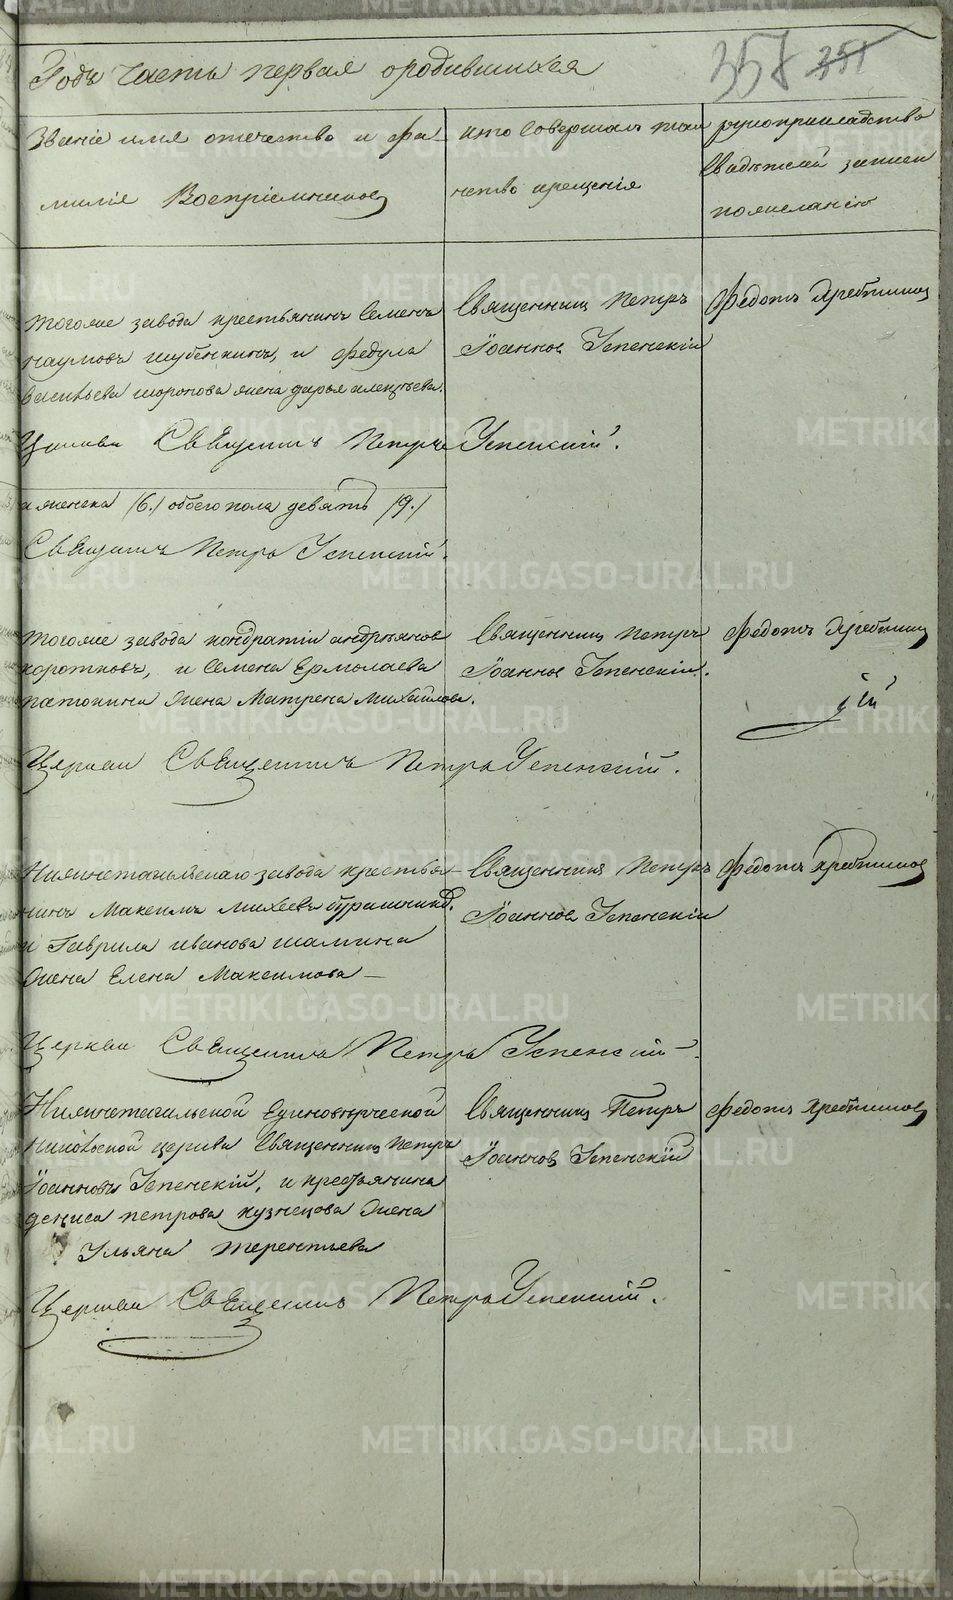 Годъ часть первая ородившихся
357 351
Званіе имя отечество и фа-
милія Воспріемниковъ
кто совершалъ таи
нство крещенія
рукоприкладство
свидѣтелей записи
пожеланію
тогоже завода крестьянинъ Семенъ
наумовъ шубенкинъ, и федула
васильева жена дарья
Священникъ Петръ
Іоанновъ Успенскій
Федотъ Хребтиков
Священникъ Петръ Успенскій.
и женска /6./ обоего пола девять /9./
Священникъ Петръ Успенскій.
тогоже завода кондратій андрьянов
коротковъ, и Семена Ермолаева
патокина жена Матрена Михайлова.
Священникъ Петръ
Іоанновъ Успенскій.
Федотъ
Церкви Священникъ Петръ Успенскій.
Нижнетагильскаго завода крестья-
нинъ Максимъ Михеевъ
и Гаврила иванова шамина
жена Елена Максимова —
Священникъ Петръ
Іоанновъ Успенскій
Федотъ Хребтиковъ
Церкви Священникъ Петръ Успенскій
Нижнетагильской Единовѣрческой
Никольской церкви Священникъ петръ
Іоанновъ Успенскій, и крестьянина
дениса петрова кузнецова жена
Ульяна терентьева
Священникъ Петръ
Іоанновъ Успенскій
Федотъ Хребтиковъ
Церкви Священникъ Петръ Успенскій.
METRIKI.GASO-URAL.RU